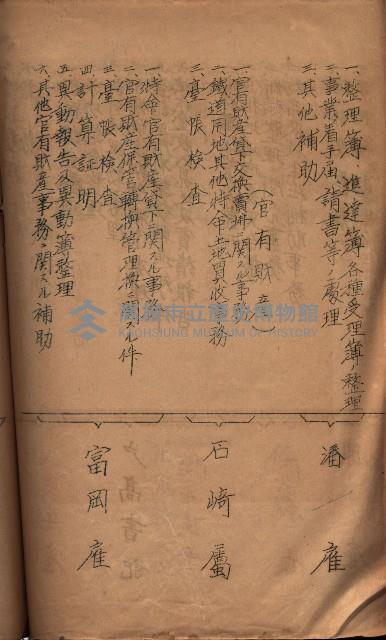 一、整理簿、進達簿各種受理簿ノ整理
二、事業着手届請書等ノ處理
三、其他補助
潘 雇
(官有財産)
一、官有財産貸下交換賣拂ニ関スル事務
二、鐵道用地其他特命土地買收事務
三、臺帳検査
石崎 属
一、特命官有財産貸下ニ関スル事務
二、官有財産保管轉換管理換ニ関スル件
三、臺帳検査
四、計算証明
五、異動報告及異動簿整理
六、其他官有財産事務ニ関スル補助
富岡 雇
高雄市立歷史博物館
KAOHSIUNG MUSEUM OF HISTORY